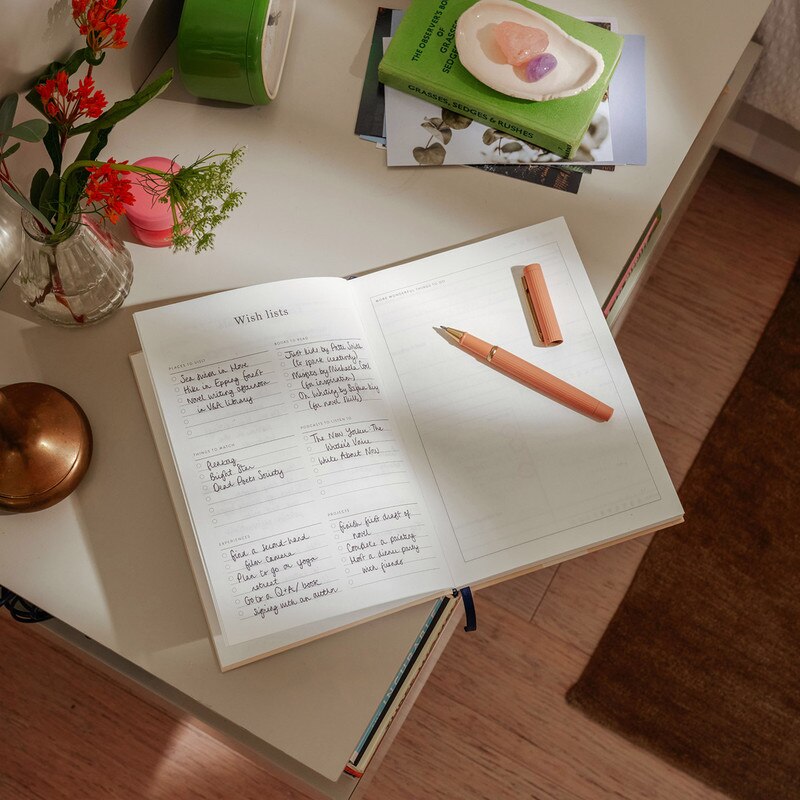 THE OBSERVER'S BO
OF
GRASSES
SEDGES
GRASSES, SEDGES & RUSHES
Wish lists
PLACES TO VISIT
Sea swim in Hove
Hike in Epping forest
Novel writing afternoon
in V&A Library
BOOKS TO READ
Just kids by Patti Smith
(to spark creativity)
by Michaela Coel
(for inspiration)
On Writing by Stephen King
(for novel skills)
THINGS TO WATCH
Fleabag
Bright Star
Dead Poets Society
PODCASTS TO LISTEN TO
The New Yorker: The
Writer's Voice
Write About Now
EXPERIENCES
Find a second-hand
film camera
Plan to go on yoga
retreat
Go to a Q+A / book
signing with an author
PROJECTS
Finish first draft of
novel
Complete a painting
Host a dinner party
with friends
MORE WONDERFUL THINGS TO DO